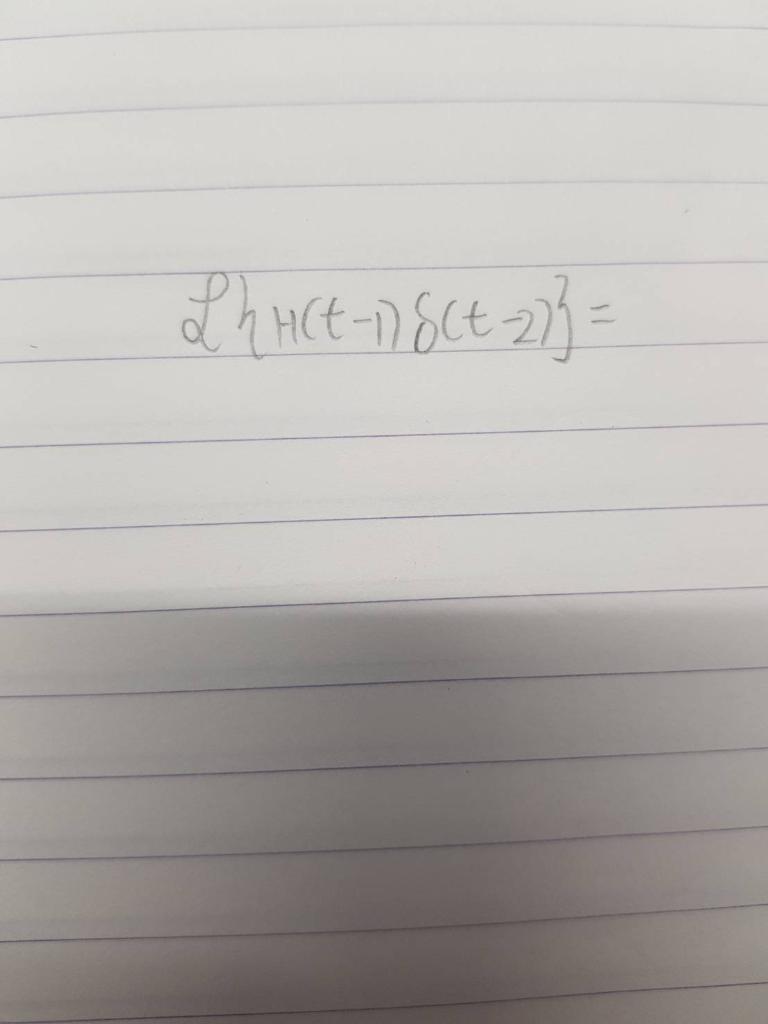 ℒ{H(t-1)δ(t-2)}=